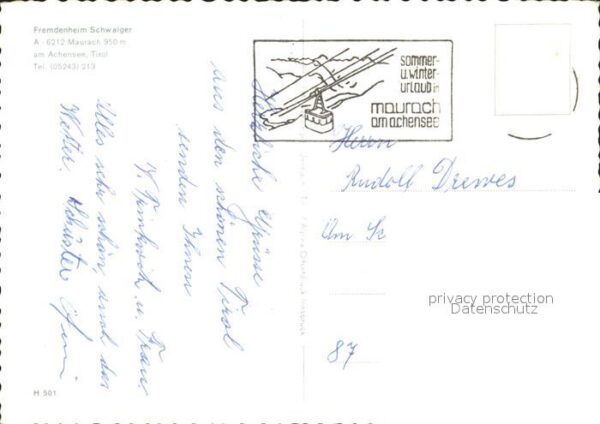 Fremdenheim Schwaiger
A - 6212 Maurach 950 m
am Achensee, Tirol
Tel. (05243) 213
sommer-
u. winter-
urlaub in
maurach
am achensee
Herzliche Grüsse
aus den schönen Tirol
senden Ihnen
u. Frau
Alles sehr schön, auch das
Wetter. Schuster
Herrn
Rudolf Drewes
Am Sc
87
privacy protection
Datenschutz
H 501